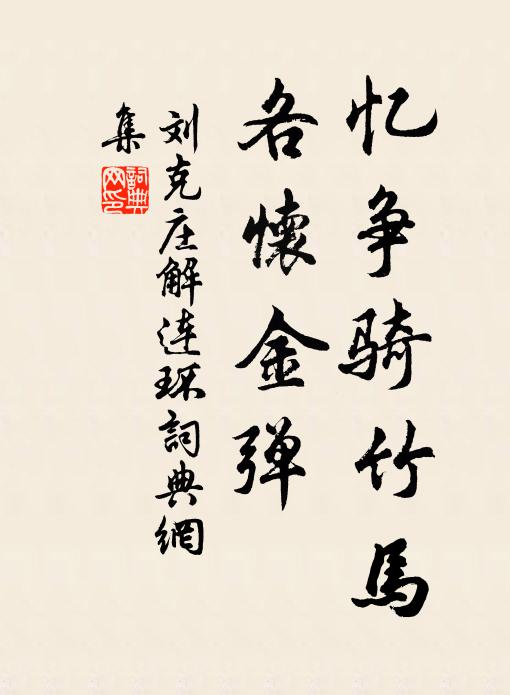 忆争骑竹马
各懷金弹
刘克庄解连环詞典網
集
詞典网印